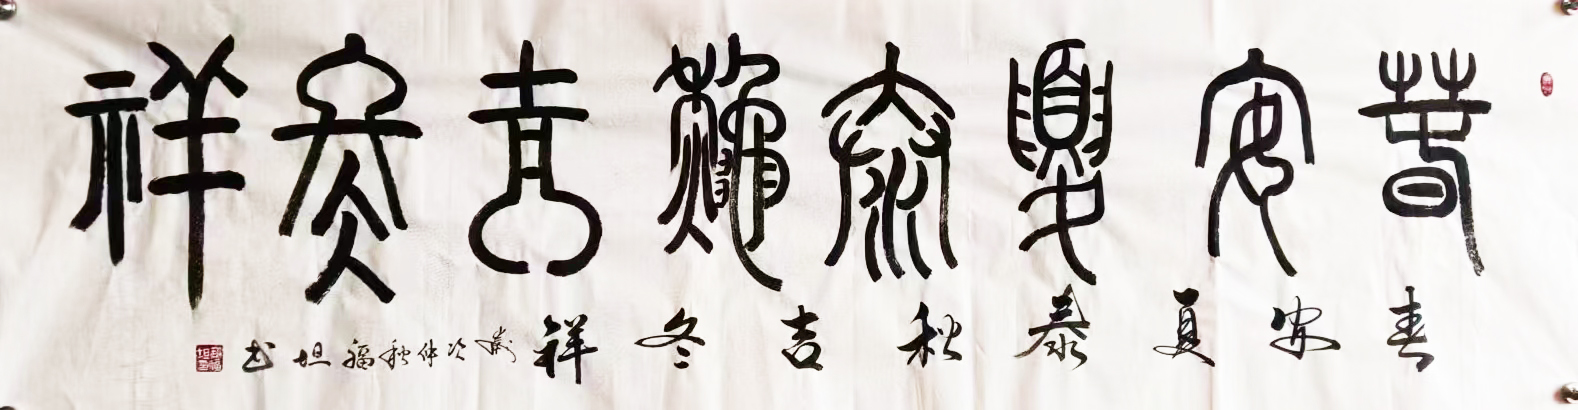 春安夏泰秋吉冬祥
春安夏泰秋吉冬祥
岁次仲秋福坦书